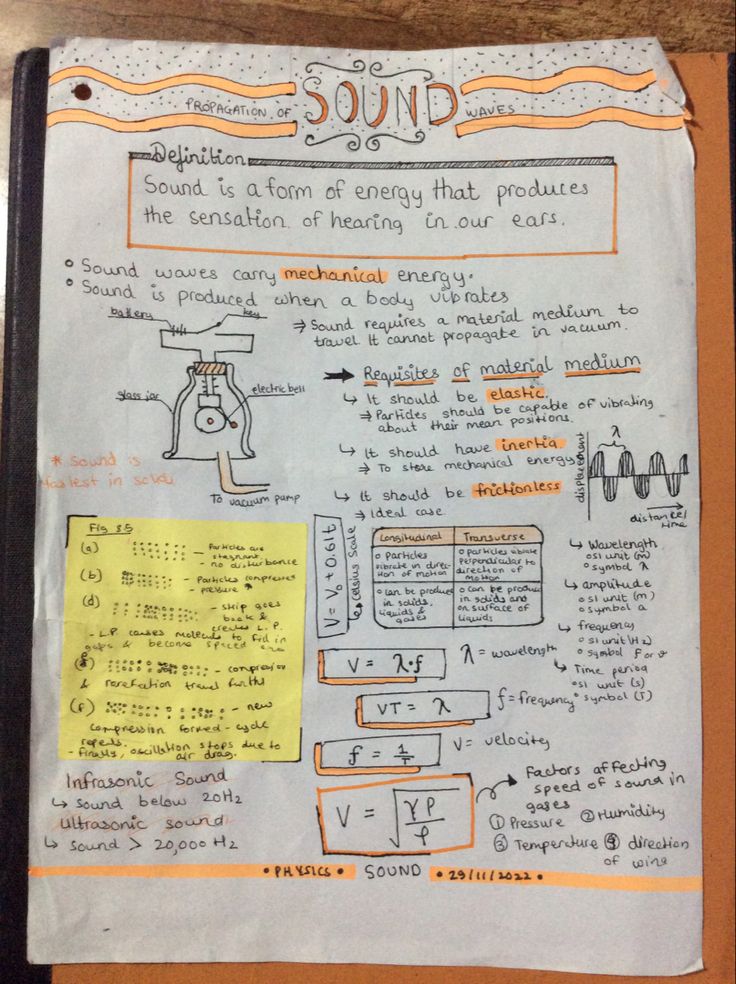 PROPAGATION OF SOUND WAVES
Definition
Sound is a form of energy that produces
the sensation of hearing in our ears.
Sound waves carry mechanical energy.
Sound is produced when a body vibrates
battery
key
glass jar
electric bell
To vacuum pump
* Sound is
fastest in solids
⇒ Sound requires a material medium to
travel. It cannot propagate in vacuum.
Requisites of material medium
↳ It should be elastic.
⇒ Particles should be capable of vibrating
about their mean positions.
↳ It should have inertia.
⇒ To store mechanical energy
↳ It should be frictionless
⇒ Ideal case.
displacement
λ
distance/
time
Fig 8.5
(a) - Particles are
stagnant.
- no disturbance
(b) - Particles compresses
- pressure ↑
(d) - strip goes
back &
creates L.P.
- L.P causes molecule to fill in
gaps & become spaced
- compression
& rarefaction travel further
(f) - new
compression formed - cycle
repeats.
- finally, oscillation stops due to
air drag.
V = V₀ + 0.61t
↳ Celsius Scale
Longitudinal
Transverse
particles
vibrate in direc-
tion of motion
particles vibrate
perpendicular to
direction of
motion
can be produce
in solids,
liquids &
gases
can be produce
in solids and
on surface of
liquids
↳ Wavelength
SI unit (m)
symbol λ
↳ amplitude
SI unit (m)
symbol a
↳ frequency
SI unit (Hz)
symbol f or ν
↳ Time period
SI unit (s)
symbol (T)
V = λ·f
λ = wavelength
VT = λ
f = frequency
f = 1/T
V = velocity
V = √(γP/ρ)
Factors affecting
speed of sound in
gases
① Pressure ② Humidity
③ Temperature ④ direction
of wine
Infrasonic Sound
↳ Sound below 20Hz
Ultrasonic sound
↳ sound > 20,000 Hz
• PHYSICS • SOUND • 29/11/2022 •